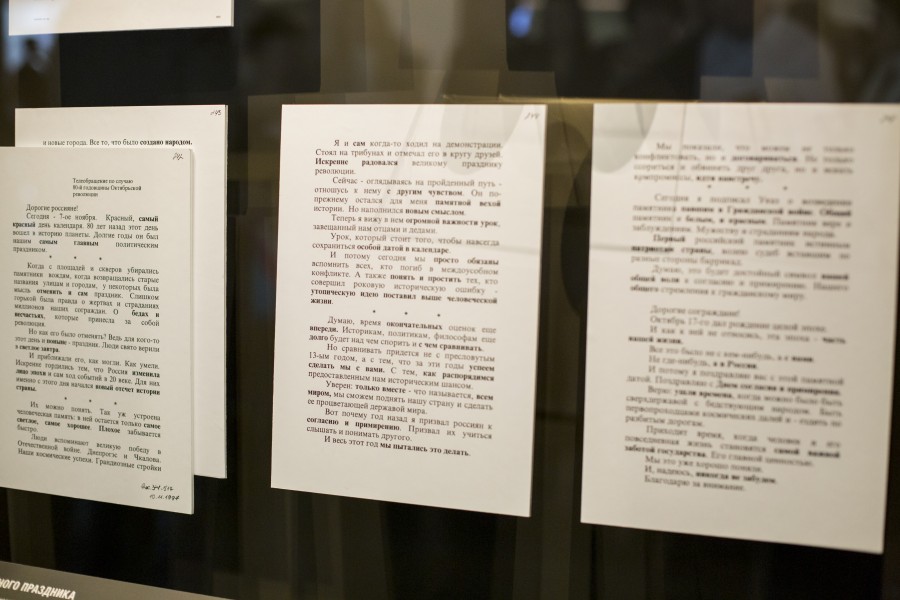 и новые города. Все то, что было создано народом.
Телеобращение по случаю
80-й годовщины Октябрьской
революции
Дорогие россияне!
Сегодня - 7-ое ноября. Красный, самый
красный день календаря. 80 лет назад этот день
вошел в историю планеты. Долгие годы он был
нашим самым главным политическим
праздником.
* * *
Когда с площадей и скверов убирались
памятники вождям, когда возвращались старые
названия улицам и городам, у некоторых была
мысль отменить и сам праздник. Слишком
горькой была правда о жертвах и страданиях
миллионов наших сограждан. О бедах и
несчастьях, которые принесла за собой
революция.
Но как его было отменять? Ведь для кого-то
этот день и поныне - праздник. Люди свято верили
в светлое завтра.
И приближали его, как могли. Как умели.
Искренне гордились тем, что Россия изменила
лицо эпохи и сам ход событий в 20 веке. Для них
именно с этого дня начался новый отсчет истории
страны.
* * *
Их можно понять. Так уж устроена
человеческая память: в ней остается только самое
светлое, самое хорошее. Плохое забывается
быстро.
Люди вспоминают великую победу в
Отечественной войне. Днепрогэс и Чкалова.
Наши космические успехи. Грандиозные стройки
Я и сам когда-то ходил на демонстрации.
Стоял на трибунах и отмечал его в кругу друзей.
Искренне радовался великому празднику
революции.
Сейчас - оглядываясь на пройденный путь -
отношусь к нему с другим чувством. Он по-
прежнему остался для меня памятной вехой
истории. Но наполнился новым смыслом.
Теперь я вижу в нем огромной важности урок,
завещанный нам отцами и дедами.
Урок, который стоит того, чтобы навсегда
сохраниться особой датой в календаре.
И потому сегодня мы просто обязаны
вспомнить всех, кто погиб в междоусобном
конфликте. А также понять и простить тех, кто
совершил роковую историческую ошибку -
утопическую идею поставил выше человеческой
жизни.
* * *
Думаю, время окончательных оценок еще
впереди. Историкам, политикам, философам еще
долго будет над чем спорить и с чем сравнивать.
Но сравнивать придется не с пресловутым
13-ым годом, а с тем, что за эти годы успеем
сделать мы с вами. С тем, как распорядимся
предоставленным нам историческим шансом.
Уверен: только вместе - что называется, всем
миром, мы сможем поднять нашу страну и сделать
ее процветающей державой мира.
Вот почему год назад я призвал россиян к
согласию и примирению. Призвал их учиться
слышать и понимать другого.
И весь этот год мы пытались это делать.
Мы показали, что можем не только
конфликтовать, но и договариваться. Не только
спорить и обвинять друг друга, но и искать
компромиссы, идти навстречу.
* * *
Сегодня я подписал Указ о возведении
памятника павшим в Гражданской войне. Общий
памятник - и белым, и красным. Памятник вере и
заблуждениям. Мужеству и страданиям народа.
Первый российский памятник истинным
патриотам страны, волею судеб вставшим по
разные стороны баррикад.
Думаю, это будет достойный символ нашей
общей воли к согласию и примирению. Нашего
общего стремления к гражданскому миру.
Дорогие сограждане!
Октябрь 17-го дал рождение целой эпохе.
И как к ней не относись, эта эпоха - часть
нашей жизни.
Все это было не с кем-нибудь, а с нами.
Не где-нибудь, а в России.
И потому я поздравляю вас с этой памятной
датой. Поздравляю с Днем согласия и примирения.
Верю: ушли времена, когда можно было быть
сверхдержавой с бедствующим народом. Быть
первопроходцами космических далей и - ездить по
разбитым дорогам.
Приходит время, когда человек и его
повседневная жизнь становятся самой важной
заботой государства. Его главной ценностью.
Мы это уже хорошо поняли.
И, надеюсь, никогда не забудем.
Благодарю за внимание.
НОГО ПРАЗДНИКА